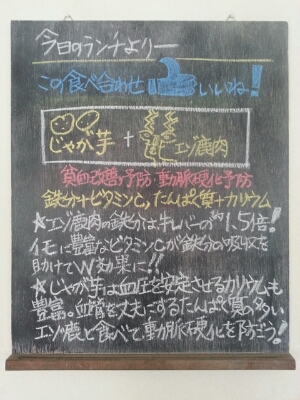 今日のランチより—
この食べ合わせ いいね!
じゃが芋 + エゾ鹿肉
貧血改善予防・動脈硬化予防
鉄分+ビタミンC,たんぱく質+カリウム
★エゾ鹿肉の鉄分は牛レバーの"1.5倍!
イモに豊富なビタミンCが鉄分の吸収を
助けてW効果に!!
★じゃが芋は血圧を安定させるカリウムも
豊富。血管を丈夫にするたんぱく質の多い
エゾ鹿と食べて、動脈硬化を防ごう!